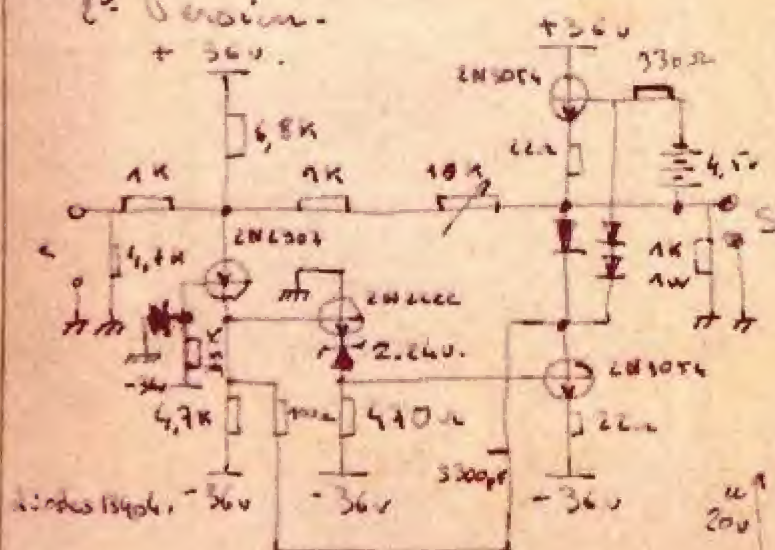 2e Version.
+ 36v.
+36v
2N3054
330Ω
6,8K
22Ω
4,5v
1K
1K
10K
S
e
4,7K
2N2907
1K
1W
2N2222
2.24v.
2N3054
33K
-36v
4,7K
100Ω
470Ω
22Ω
3300pF
diodes
-36v
-36v
-36v
u
20v